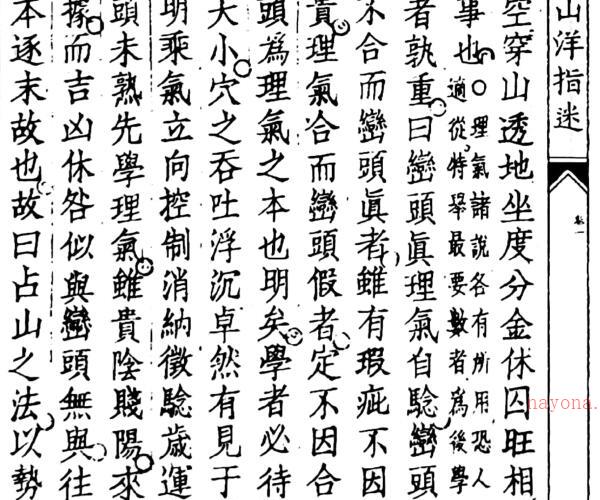 山洋指迷
卷一
空穿山透地坐度分金休囚旺相
事也○理氣諸說各有所用恐人
適從特舉最要數者爲後學
者孰重曰巒頭眞理氣自驗巒頭
不合而巒頭眞者雖有瑕疵不因
貴理氣合而巒頭假者定不因合
頭爲理氣之本也明矣學者必待
大小穴之吞吐浮沉卓然有見于
明乘氣立向控制消納徵驗歲運
頭未熟先學理氣雖貴陰賤陽來
據而吉凶休咎似與巒頭無與往
本逐末故也故曰占山之法以勢
nayona.